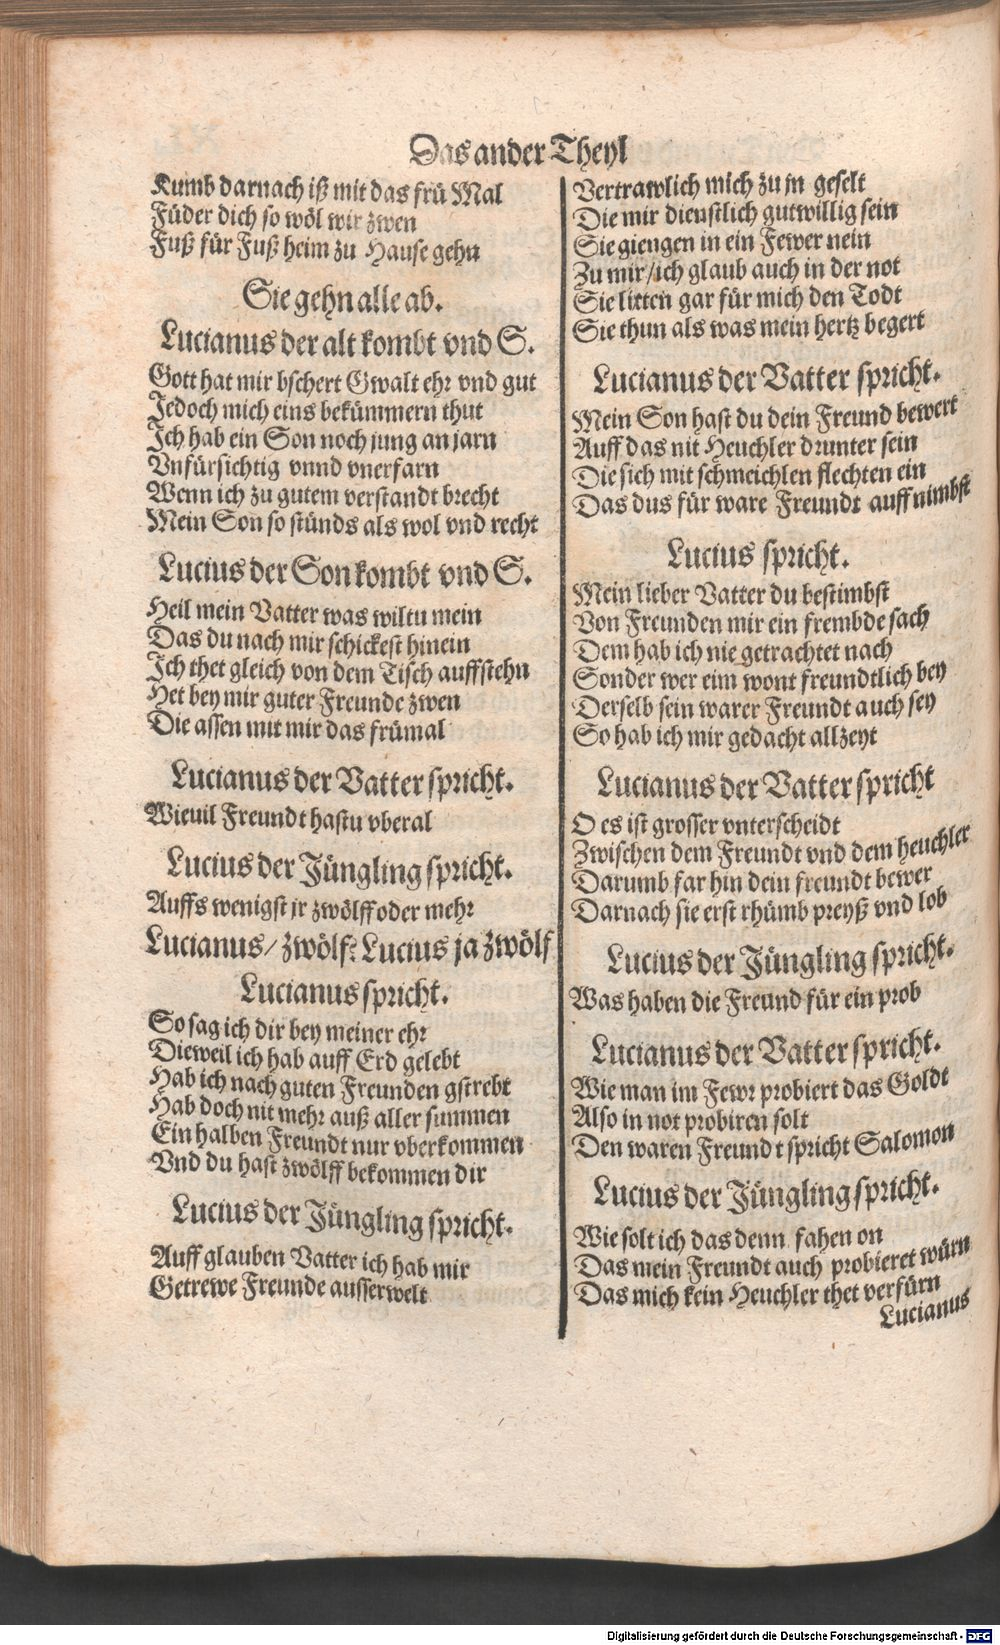 Das ander Theyl
Kumb darnach iß mit das frü Mal
Füder dich so wöl wir zwen
Fuß für Fuß heim zu Hause gehn
Sie gehn alle ab.
Lucianus der alt kombt vnd S.
Gott hat mir bschert Gwalt ehr vnd gut
Jedoch mich eins bekümmern thut
Ich hab ein Son noch jung an jarn
Vnfürsichtig vnnd vnerfarn
Wenn ich zu gutem verstandt brecht
Mein Son so stünds als wol vnd recht
Lucius der Son kombt vnd S.
Heil mein Vatter was wiltu mein
Das du nach mir schickest hinein
Ich thet gleich von dem Tisch auffstehn
Het bey mir guter Freunde zwen
Die assen mit mir das frümal
Lucianus der Vatter spricht.
Wieuil Freundt hastu vberal
Lucius der Jüngling spricht.
Auffs wenigst jr zwölff oder mehr
Lucianus/ zwölf? Lucius ja zwölf
Lucianus spricht.
So sag ich dir bey meiner ehr
Dieweil ich hab auff Erd gelebt
Hab ich nach guten Freunden gstrebt
Hab doch nit mehr auß aller summen
Ein halben Freundt nur vberkommen
Vnd du hast zwölff bekommen dir
Lucius der Jüngling spricht.
Auff glauben Vatter ich hab mir
Getrewe Freunde ausserwelt
Vertrawlich mich zu jn geselt
Die mir dienstlich gutwillig sein
Sie giengen in ein Fewer nein
Zu mir/ich glaub auch in der not
Sie litten gar für mich den Todt
Sie thun als was mein hertz begert
Lucianus der Vatter spricht.
Mein Son hast du dein Freund bewert
Auff das nit Heuchler drunter sein
Die sich mit schmeichlen flechten ein
Das dus für ware Freundt auff nimbst
Lucius spricht.
Mein lieber Vatter du bestimbst
Von Freunden mir ein frembde sach
Dem hab ich nie getrachtet nach
Sonder wer eim wont freundtlich bey
Derselb sein warer Freundt auch sey
So hab ich mir gedacht allzeyt
Lucianus der Vatter spricht
O es ist grosser vnterscheidt
Zwischen dem Freundt vnd dem heuchler
Darumb far hin dein freundt bewer
Darnach sie erst rhümb preyß vnd lob
Lucius der Jüngling spricht.
Was haben die Freund für ein prob
Lucianus der Vatter spricht.
Wie man im Fewr probiert das Goldt
Also in not probiren solt
Den waren Freundt spricht Salomon
Lucius der Jüngling spricht.
Wie solt ich das denn fahen on
Das mein Freundt auch probieret würn
Das mich kein Heuchler thet verfürn
Lucianus
Digitalisierung gefördert durch die Deutsche Forschungsgemeinschaft - DFG